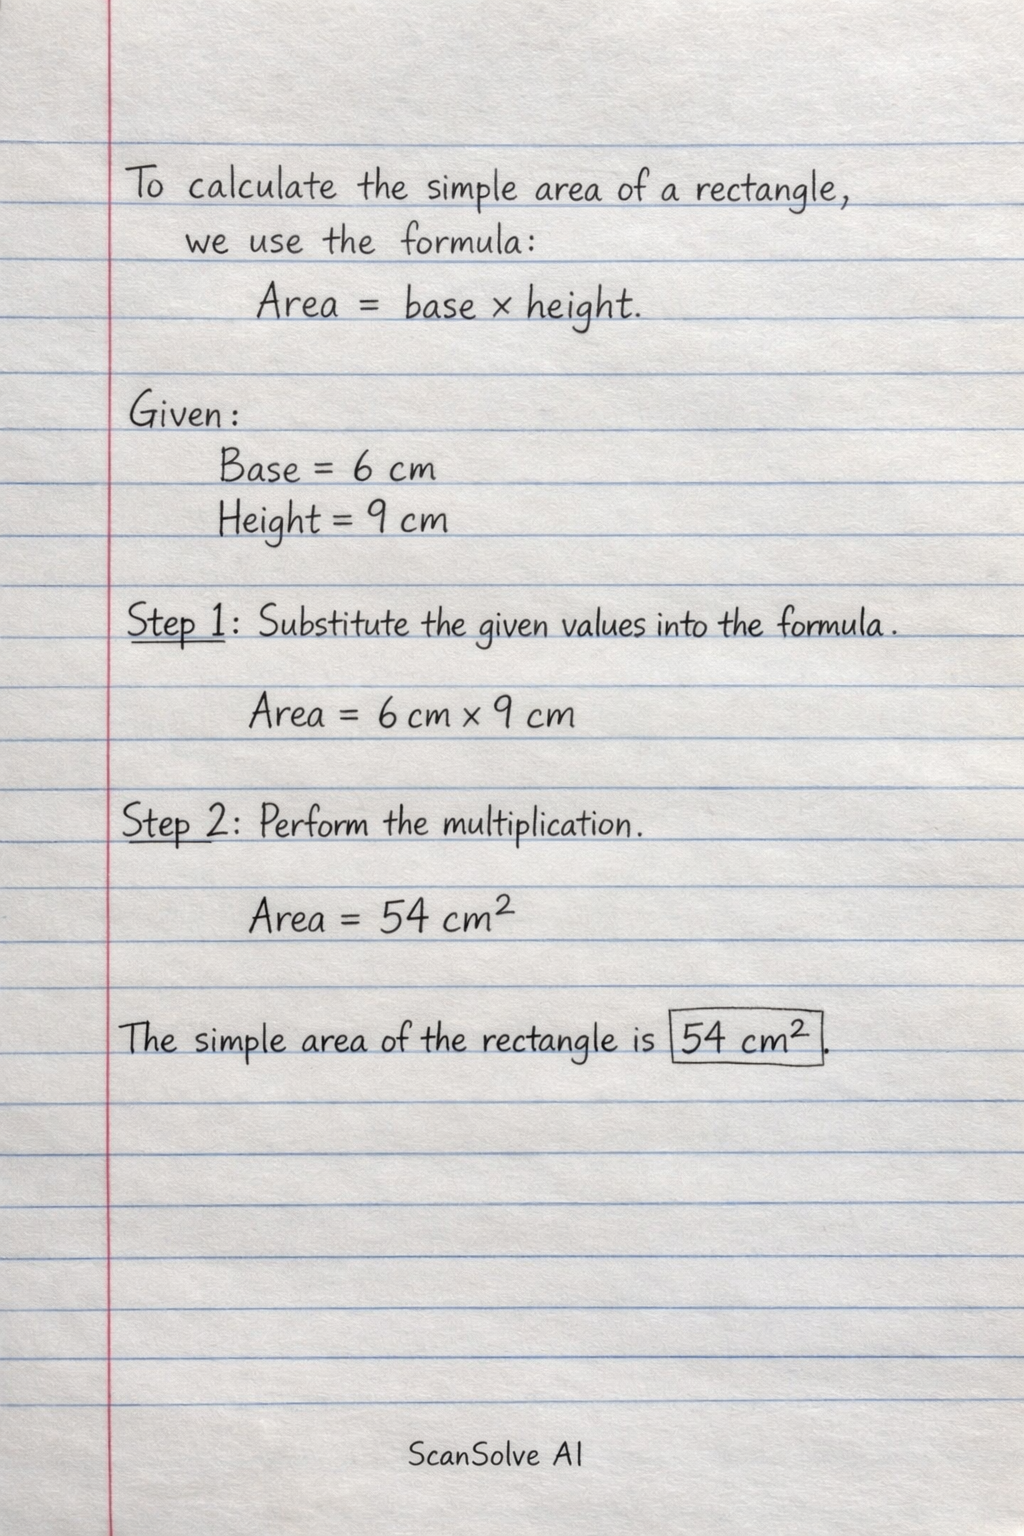 To calculate the simple area of a rectangle,
we use the formula:
Area = base × height.
Given:
Base = 6 cm
Height = 9 cm
Step 1: Substitute the given values into the formula.
Area = 6 cm × 9 cm
Step 2: Perform the multiplication.
Area = 54 cm²
The simple area of the rectangle is 54 cm².
ScanSolve AI